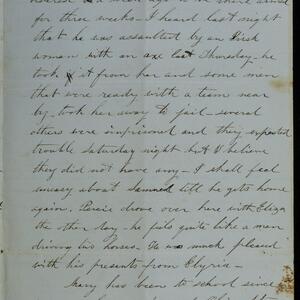 for three weeks - I heard last night
that he was assaulted by an Irish
woman with an axe last Thursday - he
took it from her and some men
that were ready with a team near
by - took her away to jail - several
others were imprisoned and they expected
trouble Saturday night but I believe
they did not have any - I shall feel
uneasy about till he gets home
again. drove over here with Eliza
the other day - he feels quite like a man
driving his horses. He was much pleased
with his presents from Elyria -
Mary has been to school since